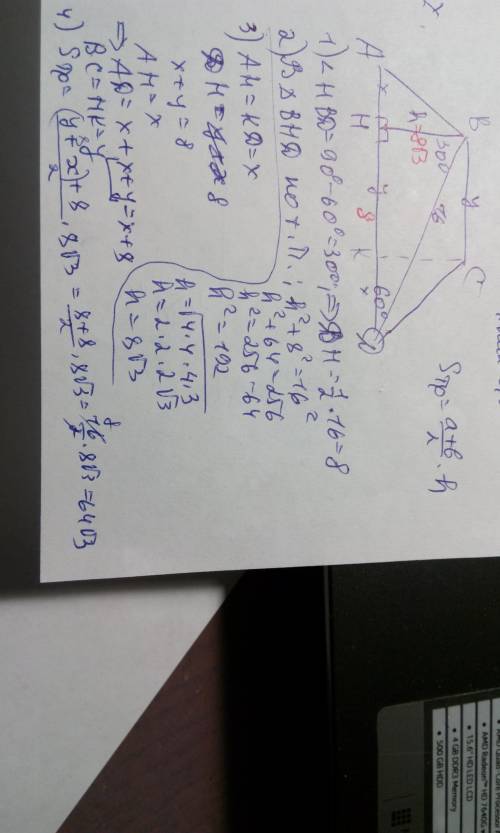 A
x
H
y
8
K
x
D
60°
h=8√3
30°
16
B
y
C
Sтр=a+b/2·h
1) ∠HBD=90°-60°=30°, ⇒ DH=1/2·16=8
2) В △BHD по т.П.: h²+8²=16²
h²+64=256
h²=256-64
h²=192
h=√4·4·4·3
h=2·2·2√3
h=8√3
3) AH=KD=x
DH=8
x+y=8
AH=x
⇒ AD=x+x+y=x+8
BC=HK=y
4) Sтр=(y+x)+8/2·8√3=8+8/2·8√3=16/2·8√3=64√3
AMD Radeon™ HD 7640G
15.6" HD LED LCD
4 GB DDR3 Memory
500 GB HDD